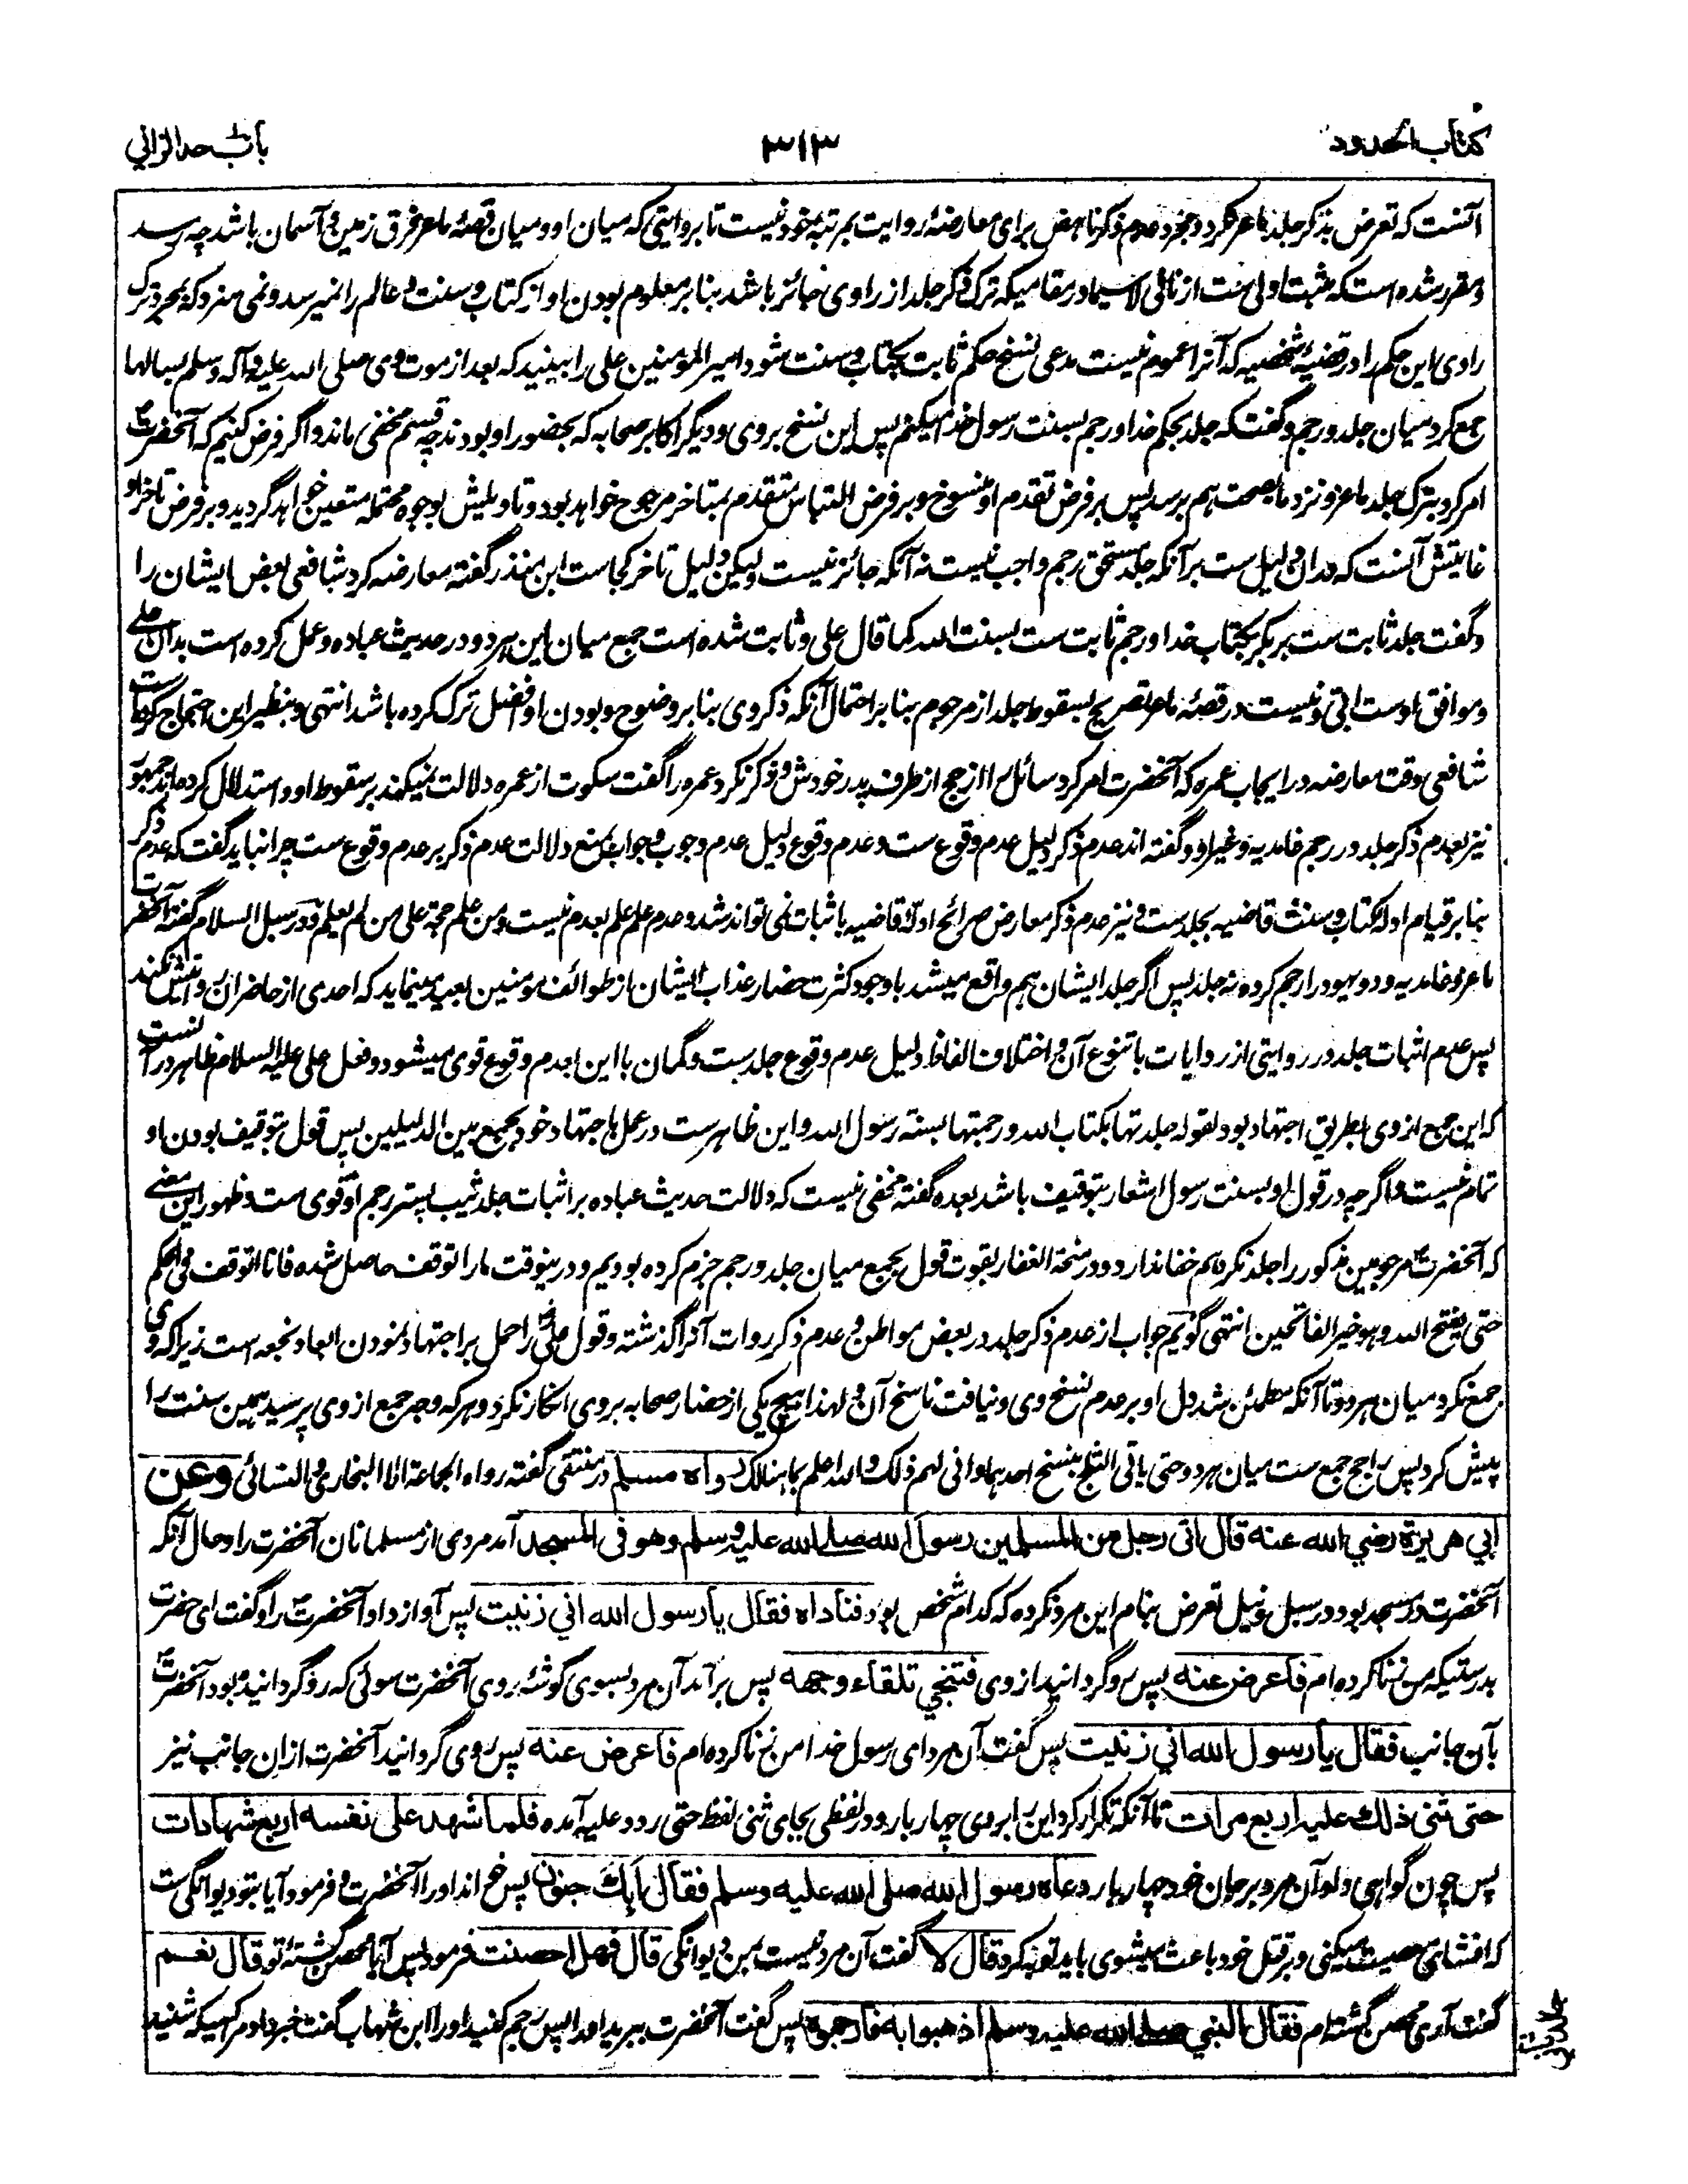 کتاب الحدود ۳۱۳ باب حد الزاني
آنست که تعرض بذکر جلد ماعز نکرد و مجرد عدم ذکر ناهض برای معارضهٔ روایت بمرتبهٔ خود نیست تا بروایتی که میان او و میان قصهٔ ماعز فرق زمین و آسمان باشد چه رسد
و مقرر شده است که مثبت اولی ست از نافی لاسیما در مقامیکه ترک ذکر جلد از راوی جائز باشد بنابر معلوم بودن او از کتاب و سنت و عالم را نمیرسد و نمی سزد که بمجرد ترک
راوی این حکم را در قضیهٔ شخصیه که آنرا عموم نیست مدعی نسخ حکم ثابت بکتاب و سنت شود امیر المؤمنین علی را ببینید که بعد از موت وی صلی الله علیه و آله وسلم بسالها
جمع کرد میان جلد و رجم و گفت که جلد بحکم خدا و رجم بسنت رسول خدا میکنم پس این نسخ بر وی و دیگر اکابر صحابه که بحضور او بودند چه قسم مخفی ماند و اگر فرض کنیم که آنحضرت
امر کرد بترک جلد ماعز و نزد ما بصحت هم برسد پس بر فرض تقدم او منسوخ و بر فرض التباس متقدم بمتاخر مرجوح خواهد بود و تاویلش بوجوه محتمله متعین خواهد گردید و بر فرض تاخر او
غایتش آنست که دران دلیل ست بر آنکه جلد مستحق رجم واجب نیست نه آنکه جائز نیست و لیکن دلیل تاخر کجاست ابن منذر گفته معارضه کرد شافعی بعض ایشان را
و گفت جلد ثابت ست بر بکر بکتاب خدا و رجم ثابت ست بسنت الله کما قال علی و ثابت شده است جمع میان این هر دو در حدیث عباده و عمل کرده است بدان علی
و موافق اوست ابی و نیست در قصهٔ ماعز تصریح بسقوط جلد از مرجوم بنابر احتمال آنکه ذکر وی بنابر وضوح و بودن او اصل ترک کرده باشد انتهی و بنظیر این احتجاج کرده است
شافعی وقت معارضه در ایجاب عمره که آنحضرت امر کرد سائل را از حج از طرف پدر خودش و ذکر نکرد عمره را گفت سکوت از عمره دلالت نمیکند بر سقوط او و استدلال کرده اند جمهور
نیز بعدم ذکر جلد در رجم غامدیه و غیر او و گفته اند عدم ذکر دلیل عدم وقوع ست و عدم وقوع دلیل عدم وجوب و جواب بمنع دلالت عدم ذکر بر عدم وقوع ست چرا نباید گفت که عدم ذکر
بنابر قیام ادلهٔ کتاب و سنت قاضیه بجلد ست و نیز عدم ذکر معارض صرائح ادلهٔ قاضیه باثبات نمی تواند شد و عدم علم علم بعدم نیست و من علم حجة علی من لم یعلم و در سبل السلام گفته آنحضرت
ماعز و غامدیه و دو یهود را رجم کرده نه جلد پس اگر جلد ایشان هم واقع میشد باوجود کثرت حضار عذاب ایشان از طوائف مؤمنین بعید مینماید که احدی از حاضران روایتش نکند
پس عدم اثبات جلد در روایتی از روایات با تنوع آن و اختلاف الفاظ دلیل عدم وقوع جلد ست و گمان با این بعدم وقوع قوی میشود و فعل علی علیه السلام ظاهر در آنست
که این جمع از وی بطریق اجتهاد بود لقوله جلدتها بکتاب الله و رجمتها بسنة رسول الله و این ظاهر ست در عمل باجتهاد خود بجمع بین الدلیلین پس قول بتوقیف بودن او
تمام نیست و اگر چه در قول او بسنت رسول اشعار بتوقیف باشد بعده گفته مخفی نیست که دلالت حدیث عباده بر اثبات جلد ثیب پستر رجم او قوی ست و ظهور این معنی
که آنحضرت مرجومین مذکور را جلد نکرد هم خفا ندارد و در منحة الغفار بقوت قول بجمع میان جلد و رجم جزم کرده بودیم و درینوقت ما را توقف حاصل شده فانا اتوقف فی الحکم
حتی یفتح الله و هو خیر الفاتحین انتهی گویم جواب از عدم ذکر جلد در بعض مواطن و عدم ذکر روات آنرا گذشته و قول علی را حمل بر اجتهاد نمودن ابعاد نجعه است زیرا که وی
جمع نکرد میان هر دو تا آنکه مطمئن شد دل او بر عدم نسخ وی و نیافت ناسخ آن و لهذا هیچ یکی از حضار صحابه بر وی انکار نکرد و هر که وجه جمع از وی پرسید همین سنت را
پیش کرد پس راجح جمع ست میان هر دو حتی یاتی الثلج بنسخ احدهما و انی لهم ذلک والله اعلم بما هنالک رواه مسلم در منتقی گفته رواه الجماعة الا البخاری و النسائی وعن
ابي هريرة رضي الله عنه قال اتى رجل من المسلمين رسول الله صلى الله عليه وسلم وهو في المسجد آمد مردی از مسلمانان آنحضرت را و حال آنکه
آنحضرت در مسجد بود و در سبل و نیل تعرض بنام این مرد نکرده که کدام شخص بود فناداه فقال يا رسول الله اني زنيت پس آواز داد آنحضرت را و گفت ای حضرت
بدرستیکه من زنا کرده ام فاعرض عنه پس رو گردانید از وی فتنحي تلقاء وجهه پس بر آمد آن مرد بسوی گوشهٔ روی آنحضرت سوئی که رو گردانیده بود آنحضرت
بآن جانب فقال يا رسول الله اني زنيت پس گفت آن مرد ای رسول خدا من زنا کرده ام فاعرض عنه پس روی گردانید آنحضرت از ان جانب نیز
حتى ثنى ذلك عليه اربع مرات تا آنکه تکرار کرد این را بر وی چهار بار و در لفظی بجای ثنی لفظ حتی ردد علیه آمده فلما شهد على نفسه اربع شهادات
پس چون گواهی داد آن مرد بر جان خود چهار بار دعاه رسول الله صلى الله عليه وسلم فقال ابك جنون پس خواند او را آنحضرت و فرمود آیا بتو دیوانگی ست
که افشای معصیت میکنی و بر قتل خود باعث میشوی باید توبه کرد قال لا گفت آن مرد نیست بمن دیوانگی قال فهل احصنت فرمود پس آیا محصن گشتهٔ تو قال نعم
گفت آری محصن گشته ام فقال النبي صلى الله عليه وسلم اذهبوا به فارجموه پس گفت آنحضرت ببرید او را پس رجم کنید او را ابن شهاب گفت خبر داد مرا کسیکه شنید
حدیث